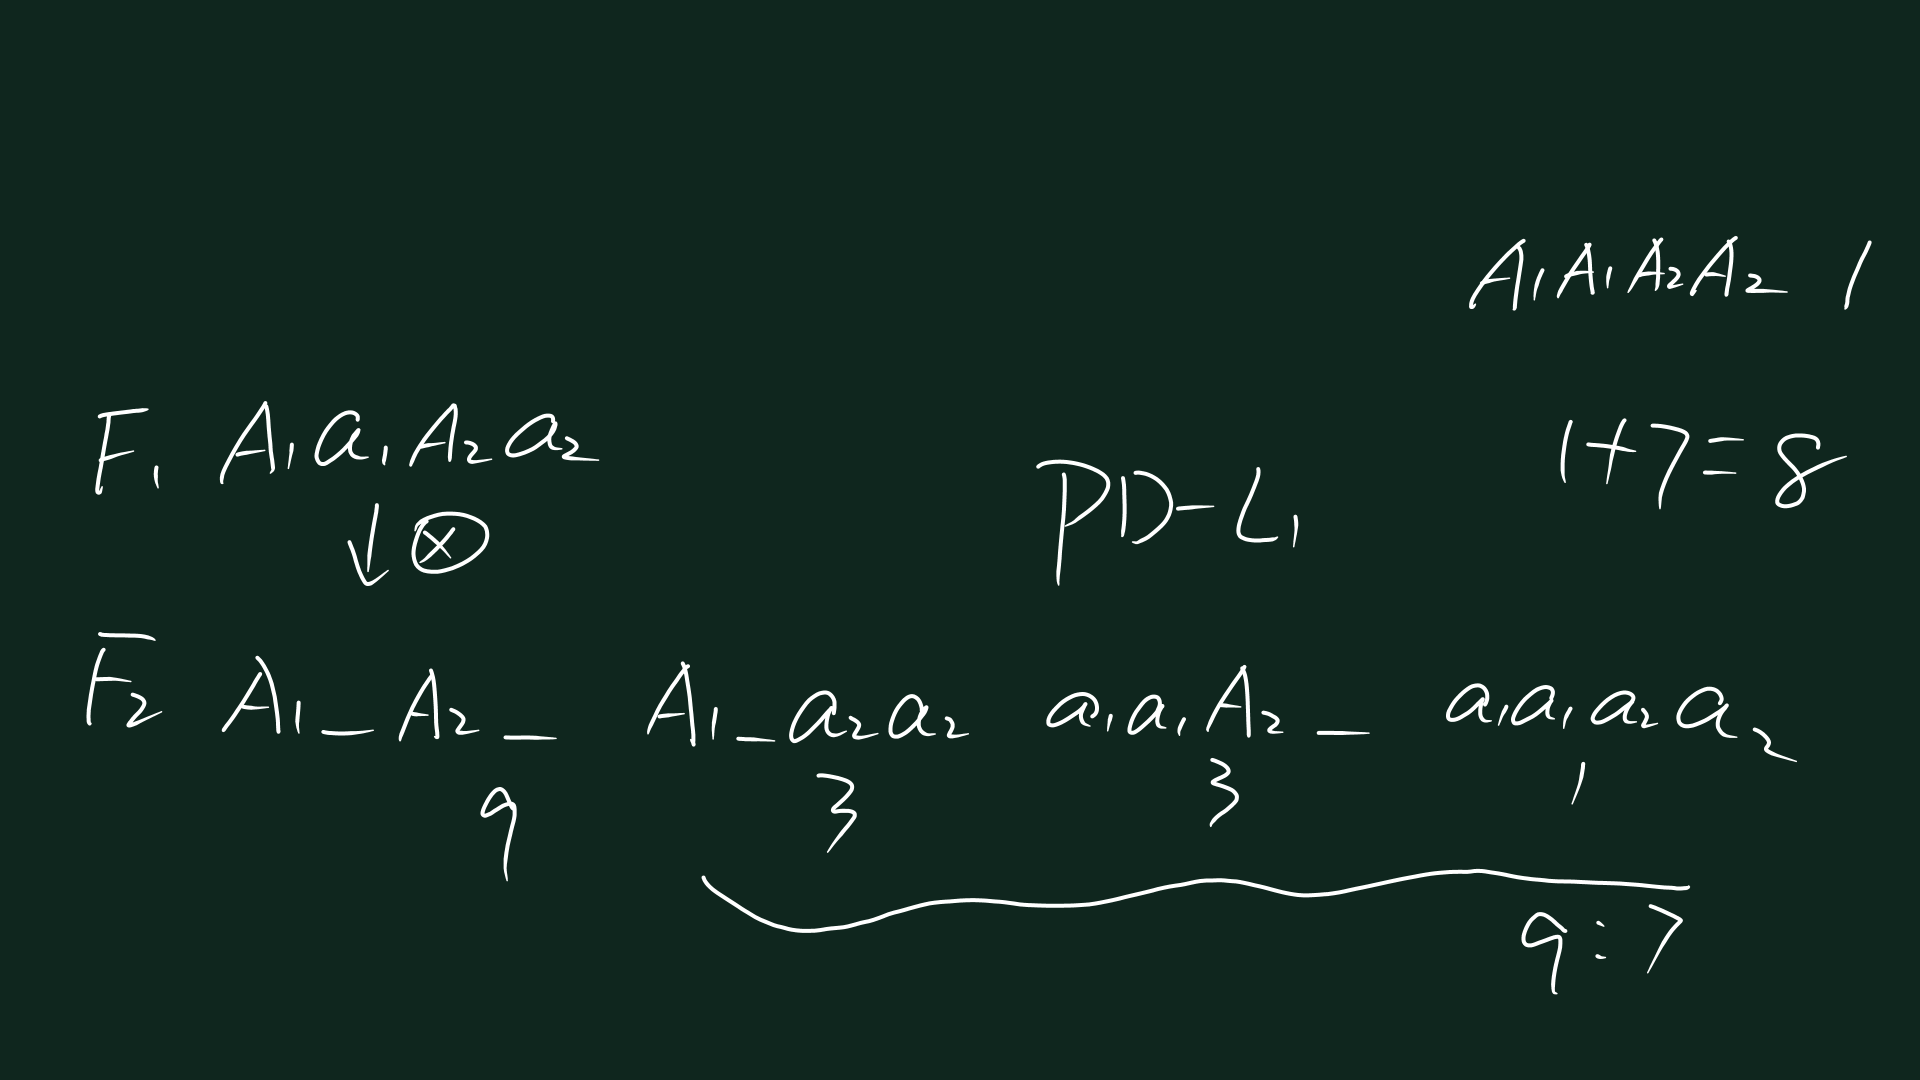 A₁A₁A₂A₂ 1
F₁ A₁a₁A₂a₂
1+7=8
PD-L₁
↓⊗
F₂ A₁_A₂_ A₁_a₂a₂ a₁a₁A₂_ a₁a₁a₂a₂
9 3 3 1
9:7